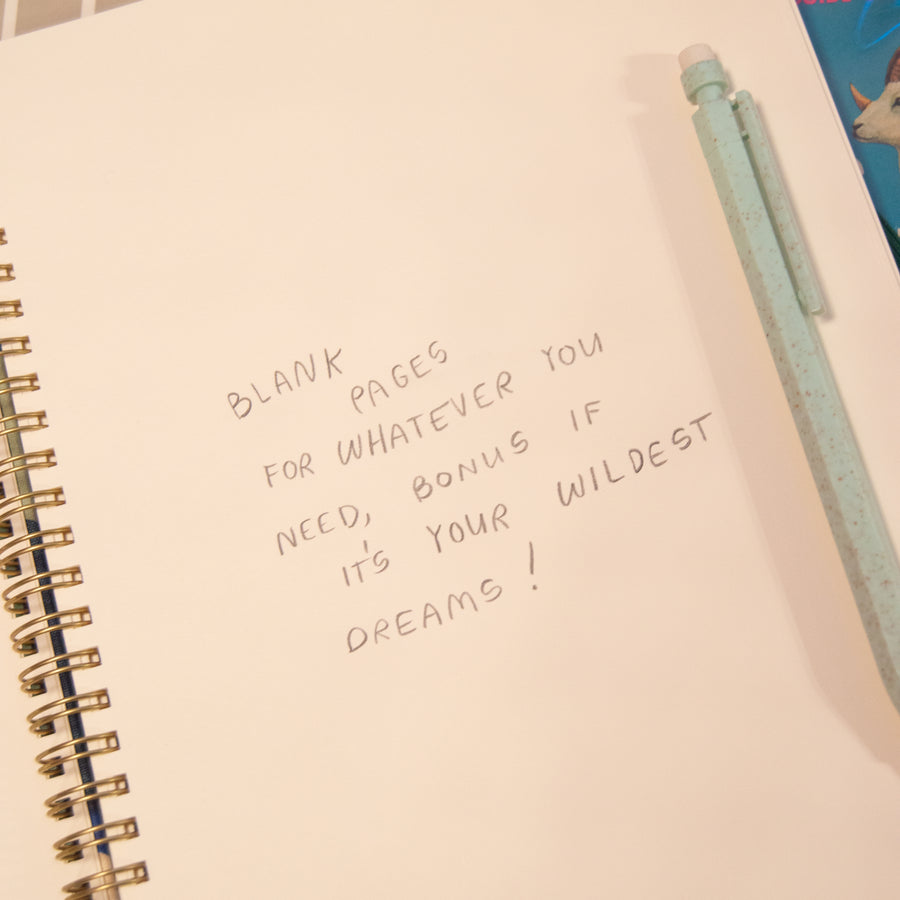 BLANK
PAGES
FOR WHATEVER YOU
NEED, BONUS IF
IT'S YOUR WILDEST
DREAMS!